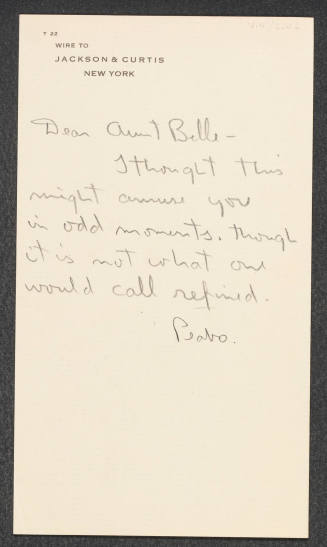 T 22
WIRE TO
JACKSON & CURTIS
NEW YORK
Dear Aunt Belle –
I thought this
might amuse you
in odd moments, though
it is not what one
would call refined.
Peabo.